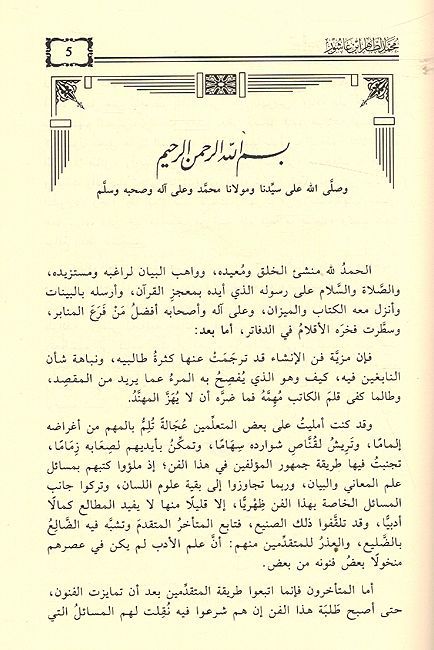 محمد الطاهر ابن عاشور
5
بسم الله الرحمن الرحيم
وصلَّى الله على سيِّدنا ومولانا محمَّد وعلى آله وصحبه وسلَّم
الحمدُ لله منشئ الخلق ومُعيده، وواهب البيان لراغبه ومستزيده،
والصَّلاة والسَّلام على رسوله الذي أيده بمعجز القرآن، وأرسله بالبينات
وأنزل معه الكتاب والميزان، وعلى آله وأصحابه أفضلُ مَنْ فَرَعَ المنابر،
وسطَّرت فخرَه الأقلامُ في الدفاتر، أما بعد:
فإن مزيَّة فن الإنشاء قد ترجَمَتْ عنها كثرةُ طالبيه، ونباهة شأن
النابغين فيه، كيف وهو الذي يُفصِحُ به المرءُ عما يريد من المقصِد،
وطالما كفى قلمَ الكاتب مُهِمَّهُ فما ضرَّه أن لا يُهَزَّ المهنَّدُ.
وقد كنت أمليتُ على بعض المتعلِّمين عُجَالةً تُلِمُّ بالمهم من أغراضه
إلمامًا، وتَرِيشُ لقُنَّاصِ شوارده سِهَامًا، وتمكِّنُ بأيديهم لصِعَابه زِمَامًا،
تجنبتُ فيها طريقة جمهور المؤلفين في هذا الفن؛ إذ ملؤوا كتبهم بمسائل
علم المعاني والبيان، وربما تجاوزوا إلى بقية علوم اللسان، وتركوا جانب
المسائل الخاصة بهذا الفن ظِهْرِيًّا، إلا قليلًا منها لا يفيد المطالع كمالًا
أدبيًّا، وقد تلقَّفوا ذلك الصنيع، فتابع المتأخرُ المتقدمَ وتشبَّه فيه الضَّالِعُ
بالضَّليع، والعذرُ للمتقدِّمين منهم: أنَّ علم الأدب لم يكن في عصرهم
منخولًا بعضُ فنونه من بعض.
أما المتأخرون فإنما اتبعوا طريقة المتقدِّمين بعد أن تمايزت الفنون،
حتى أصبح طَلَبَة هذا الفن إن هم شرعوا فيه نُقِلت لهم المسائلُ التي